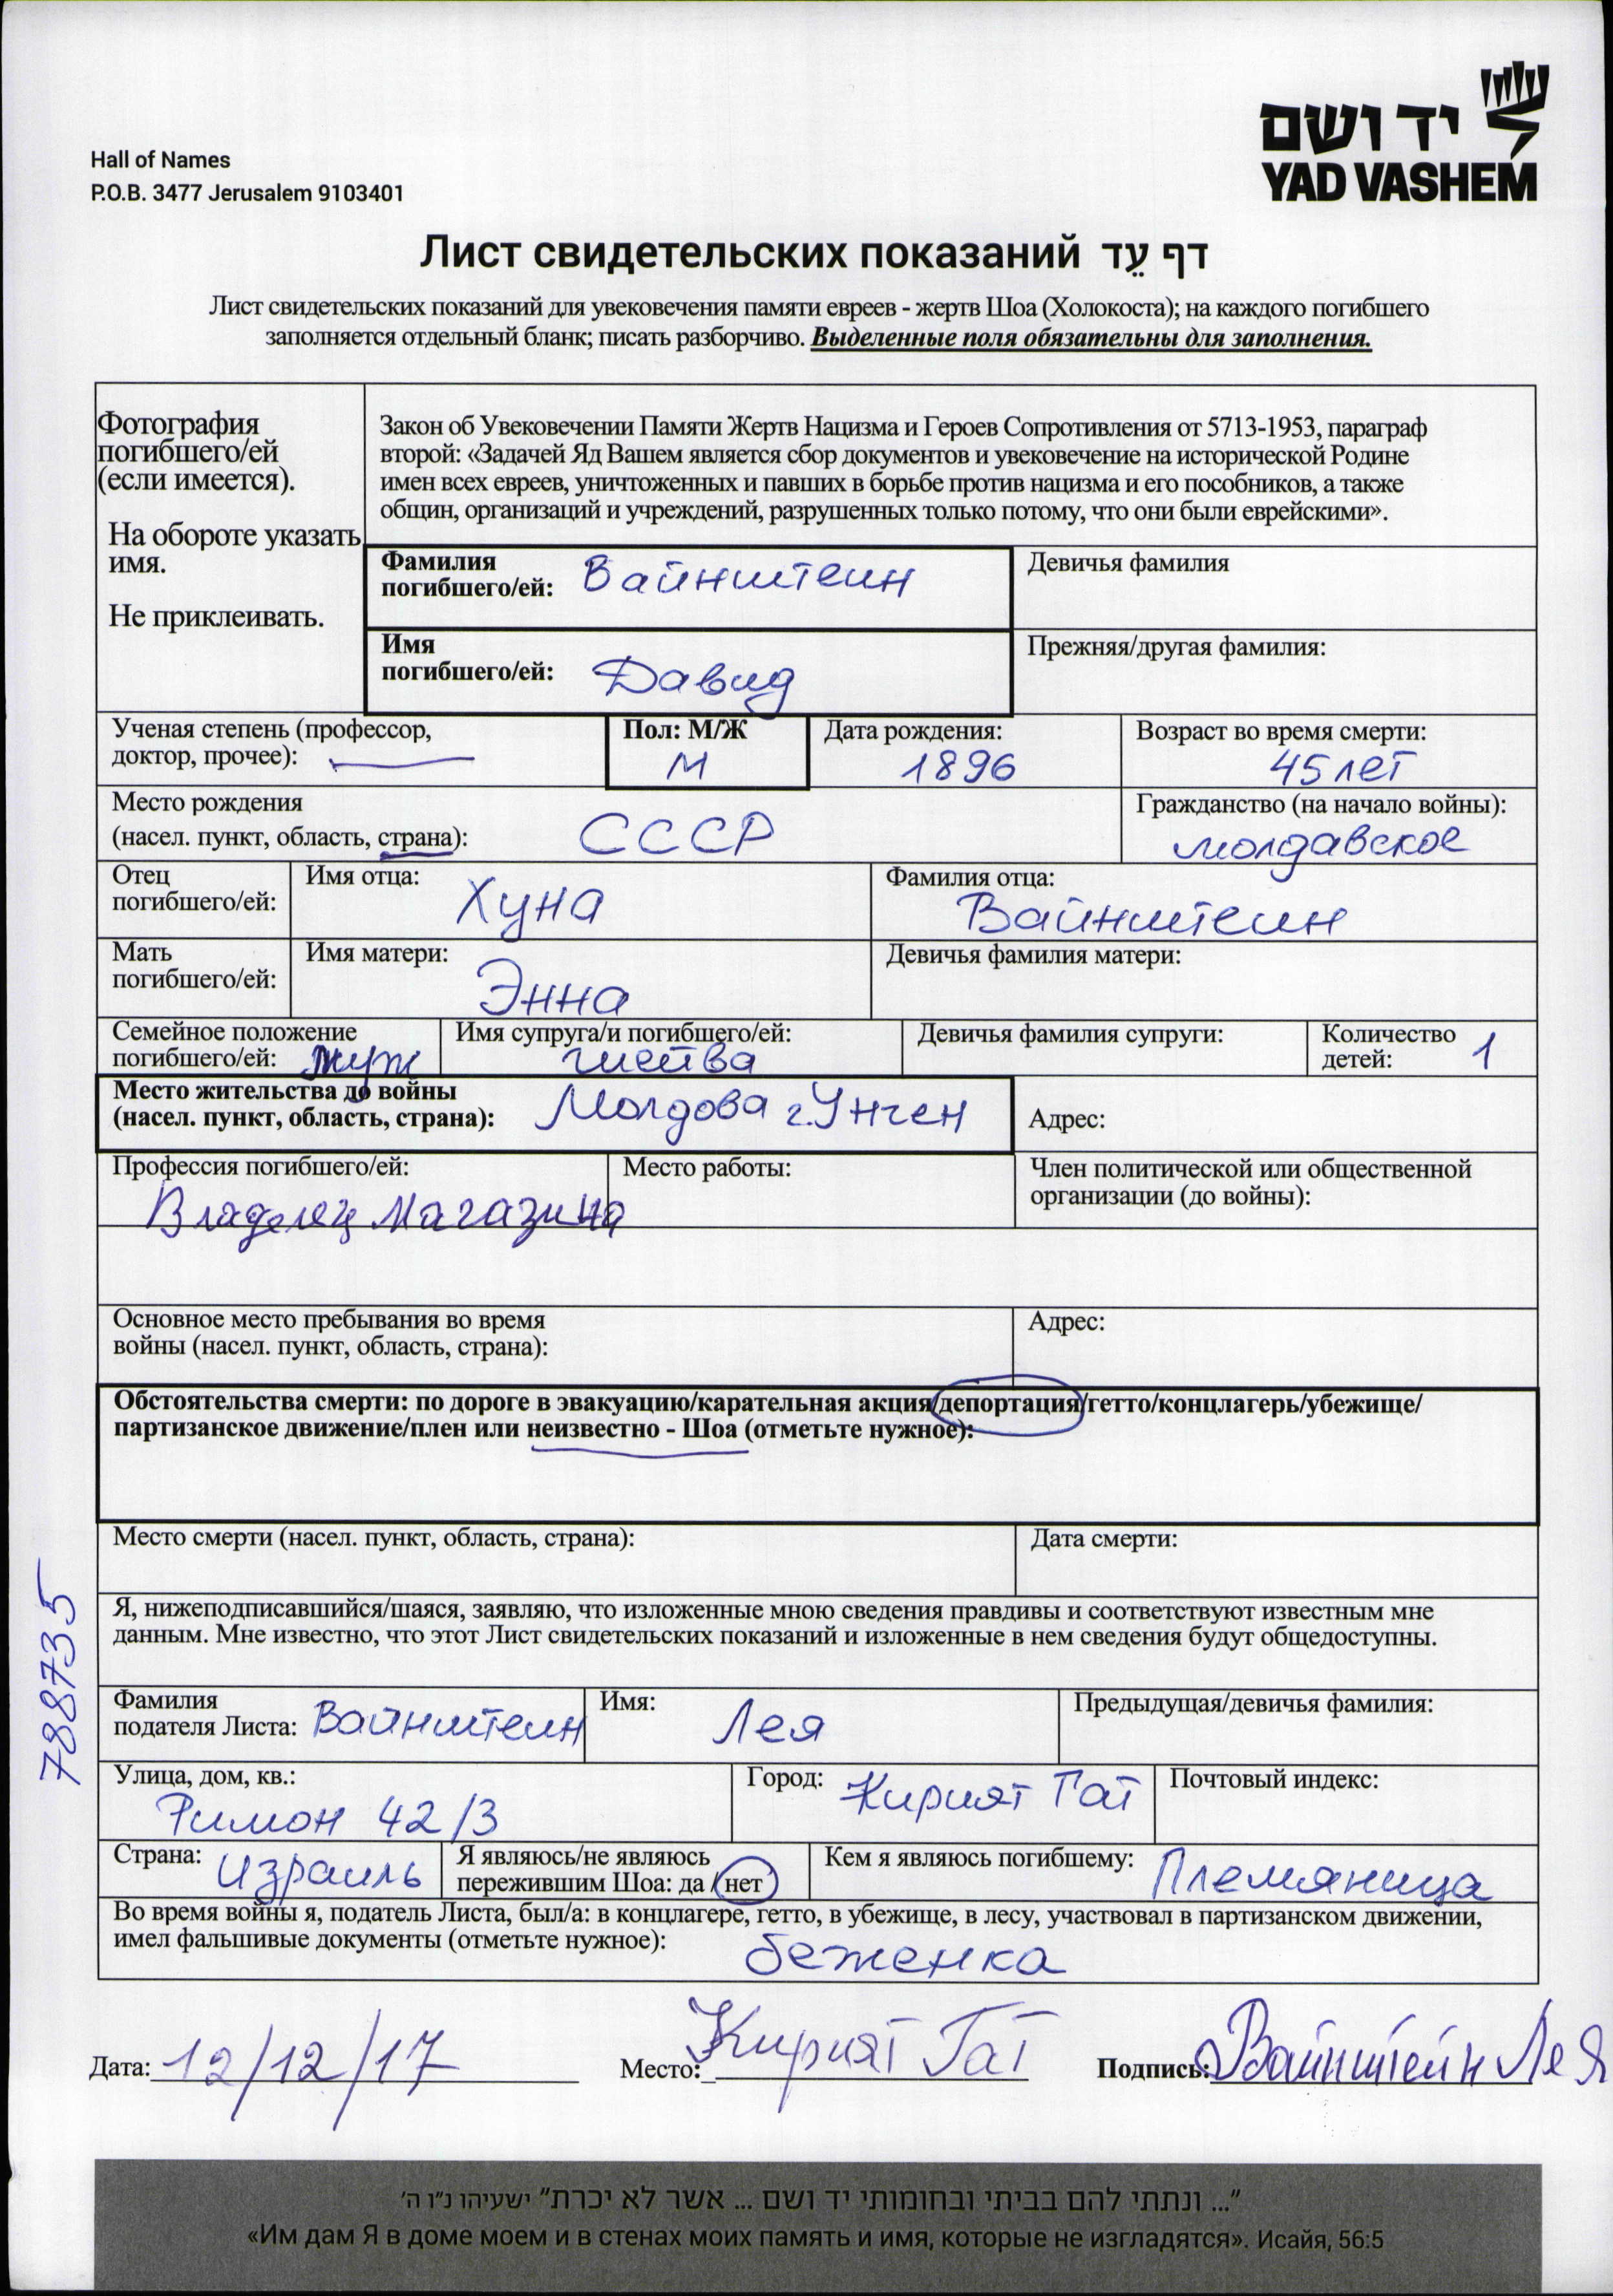 יד ושם
YAD VASHEM
Hall of Names
P.O.B. 3477 Jerusalem 9103401
Лист свидетельских показаний דף עֵד
Лист свидетельских показаний для увековечения памяти евреев - жертв Шоа (Холокоста); на каждого погибшего
заполняется отдельный бланк; писать разборчиво. Выделенные поля обязательны для заполнения.
Фотография
погибшего/ей
(если имеется).
На обороте указать
имя.
Не приклеивать.
Закон об Увековечении Памяти Жертв Нацизма и Героев Сопротивления от 5713-1953, параграф
второй: «Задачей Яд Вашем является сбор документов и увековечение на исторической Родине
имен всех евреев, уничтоженных и павших в борьбе против нацизма и его пособников, а также
общин, организаций и учреждений, разрушенных только потому, что они были еврейскими».
Фамилия
погибшего/ей: Вайнштеин
Девичья фамилия
Имя
погибшего/ей: Давид
Прежняя/другая фамилия:
Ученая степень (профессор,
доктор, прочее): —
Пол: М/Ж
М
Дата рождения:
1896
Возраст во время смерти:
45 лет
Место рождения
(насел. пункт, область, страна): СССР
Гражданство (на начало войны):
молдавское
Отец
погибшего/ей:
Имя отца: Хуна
Фамилия отца:
Вайнштеин
Мать
погибшего/ей:
Имя матери: Энна
Девичья фамилия матери:
Семейное положение
погибшего/ей: муж
Имя супруга/и погибшего/ей:
Девичья фамилия супруги:
Количество
детей: 1
Место жительства до войны
(насел. пункт, область, страна): Молдова г. Унген
Адрес:
Профессия погибшего/ей:
Владелец Магазина
Место работы:
Член политической или общественной
организации (до войны):
Основное место пребывания во время
войны (насел. пункт, область, страна):
Адрес:
Обстоятельства смерти: по дороге в эвакуацию/карательная акция/депортация/гетто/концлагерь/убежище/
партизанское движение/плен или неизвестно - Шоа (отметьте нужное):
Место смерти (насел. пункт, область, страна):
Дата смерти:
788735
Я, нижеподписавшийся/шаяся, заявляю, что изложенные мною сведения правдивы и соответствуют известным мне
данным. Мне известно, что этот Лист свидетельских показаний и изложенные в нем сведения будут общедоступны.
Фамилия
подателя Листа: Вайнштеин
Имя: Лея
Предыдущая/девичья фамилия:
Улица, дом, кв.:
Римон 42/3
Город: Кирият Гат
Почтовый индекс:
Страна: Израиль
Я являюсь/не являюсь
пережившим Шоа: да /нет
Кем я являюсь погибшему: Племяница
Во время войны я, податель Листа, был/а: в концлагере, гетто, в убежище, в лесу, участвовал в партизанском движении,
имел фальшивые документы (отметьте нужное): беженка
Дата: 12/12/17
Место: Кирият Гат
Подпись: Вайнштейн Лея
"... ונתתי להם בביתי ובחומותי יד ושם ... אשר לא יכרת" ישעיהו נ"ו ה'
«Им дам Я в доме моем и в стенах моих память и имя, которые не изгладятся». Исайя, 56:5